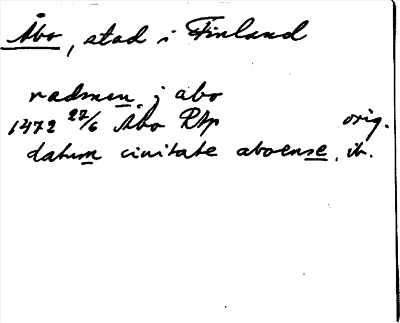 Åbo, stad i Finland
radmen j abo
1472 27/6 Åbo Rtp orig.
datum ciuitate aboense, ib.